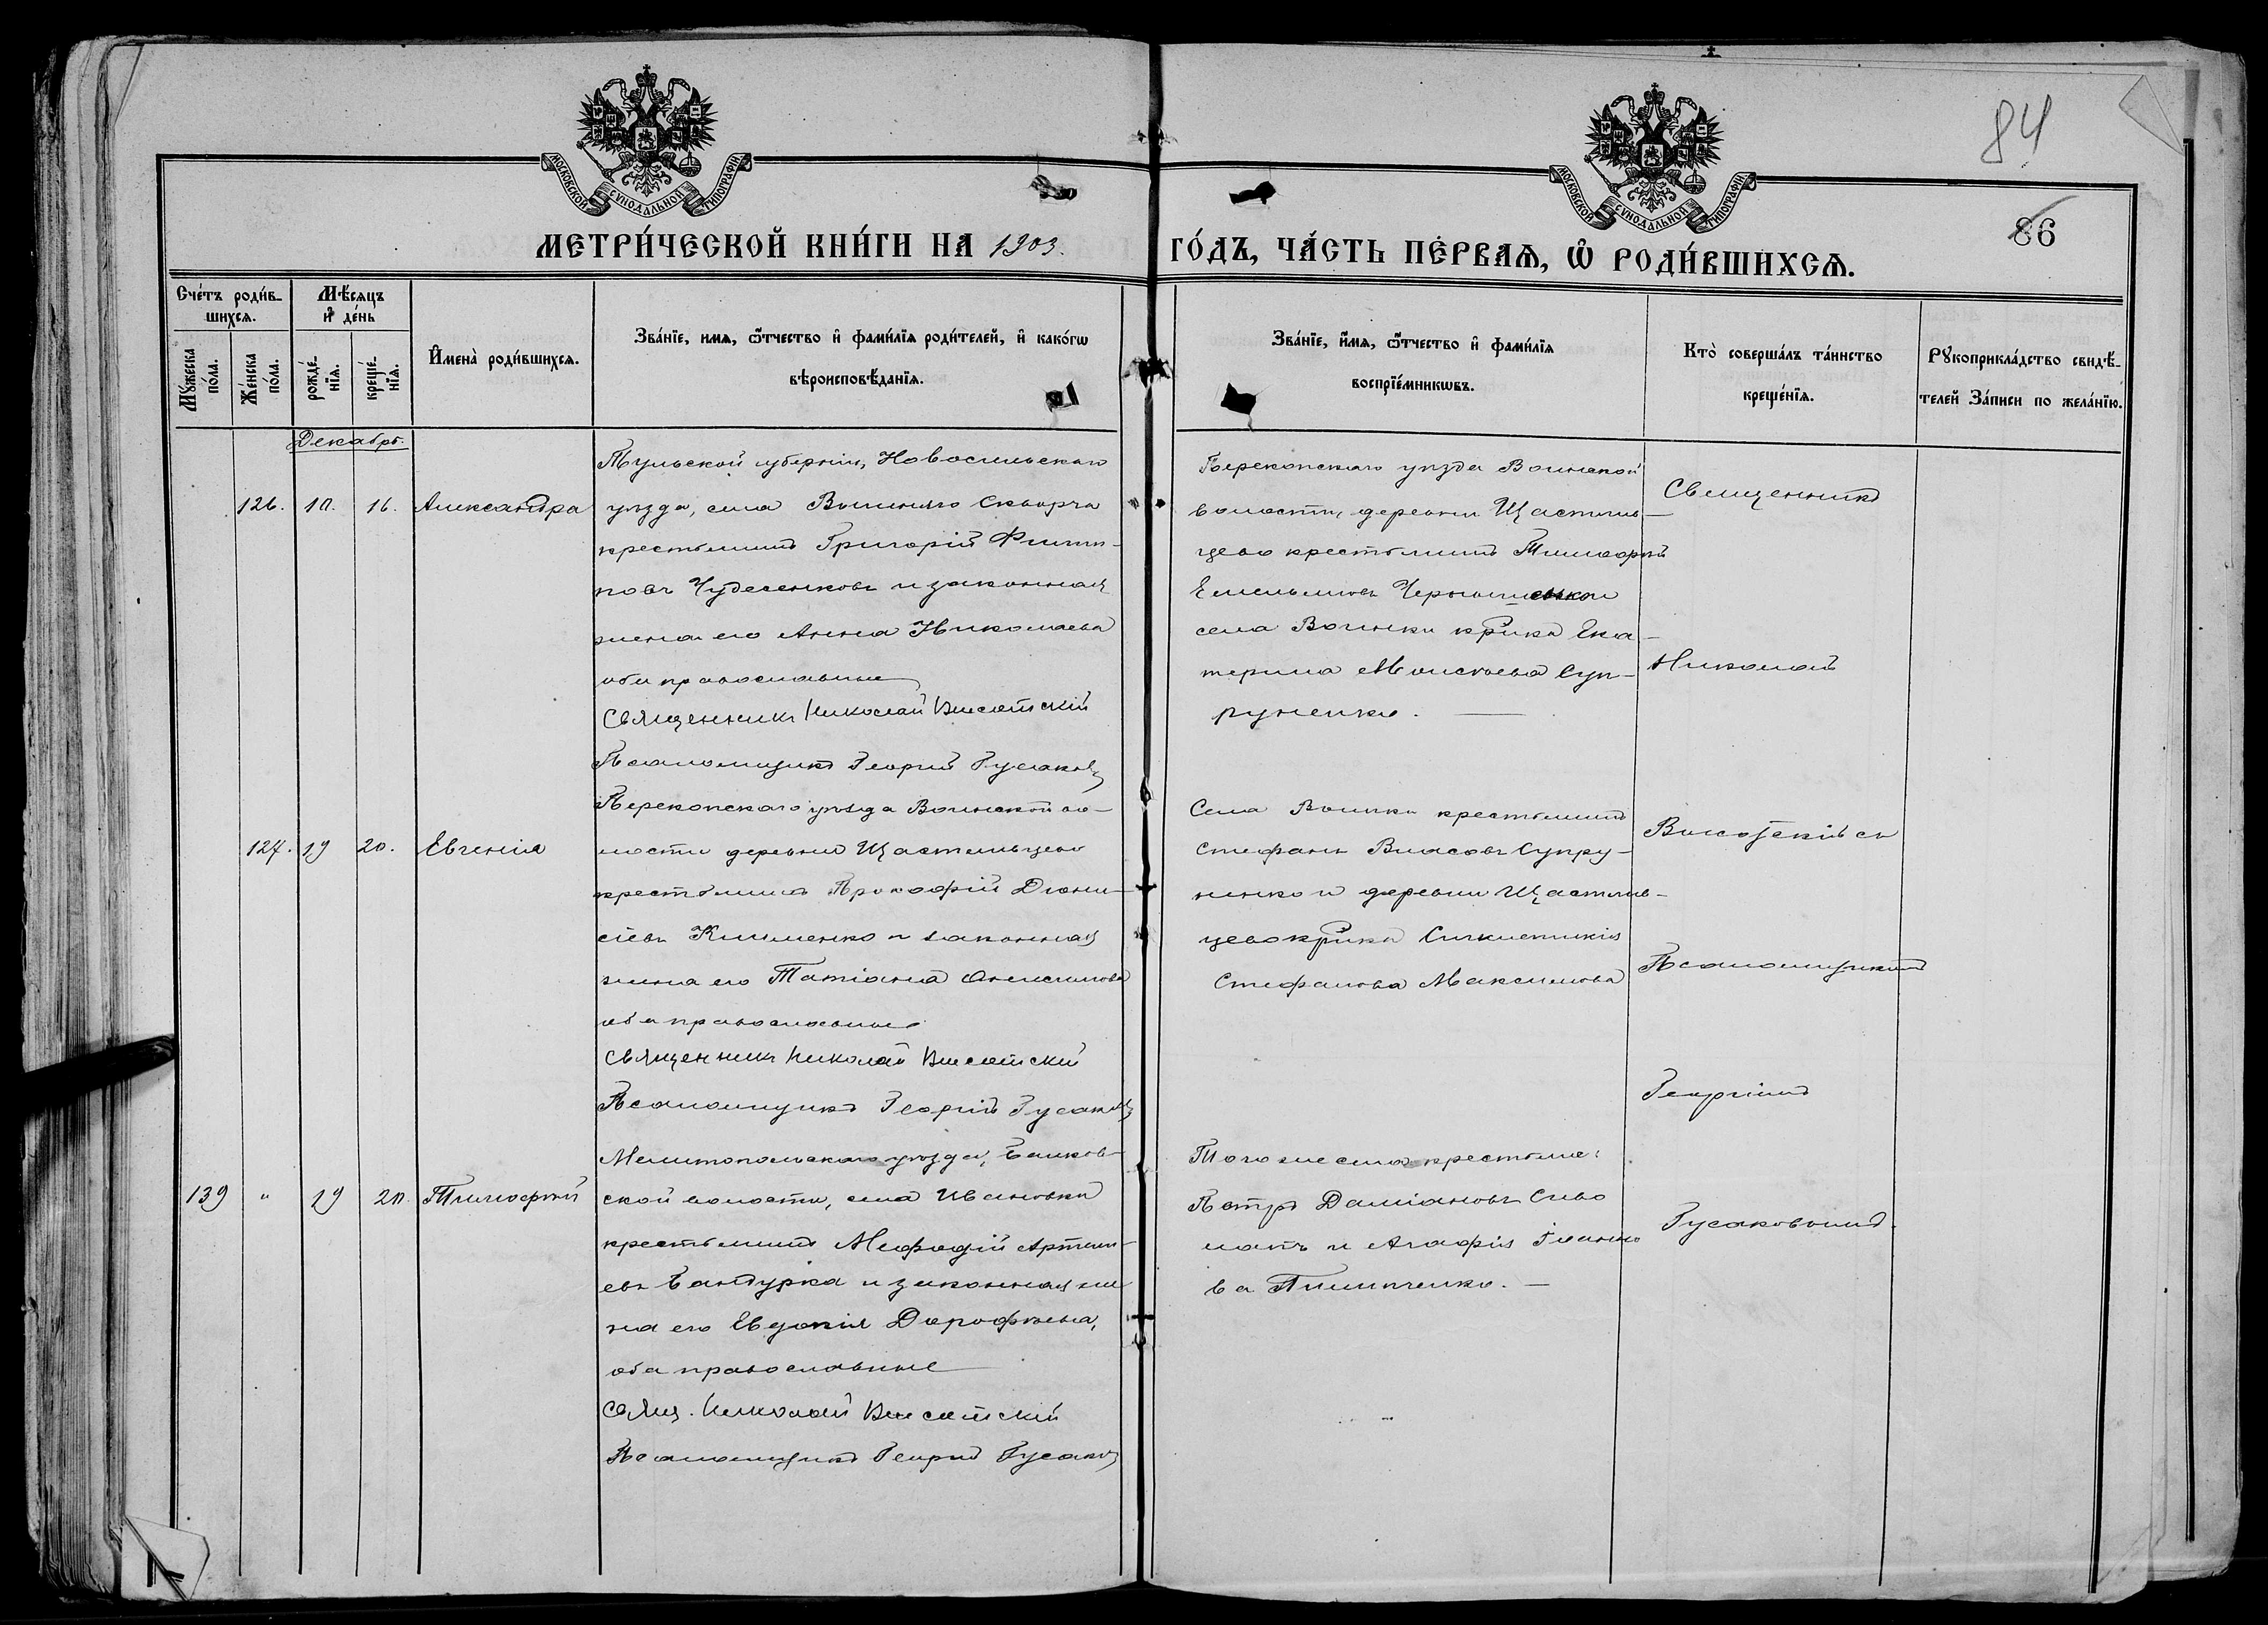 84
МОСКОВСКОЙ СѴНОДАЛЬНОЙ ТИПОГРАФІИ
МОСКОВСКОЙ СѴНОДАЛЬНОЙ ТИПОГРАФІИ
86
МЕТРИ́ЧЕСКОЙ КНИ́ГИ НА 1903.
ГО́ДЪ, ЧА́СТЬ ПЕ́РВАѦ, Ѽ РОДИ́ВШИХСѦ.
Сче́тъ роди́в-
шихсѧ.
Мѣ́сѧцъ
и҆ де́нь
Мꙋ́жеска
по́ла.
Же́нска
по́ла.
рожде́-
нїѧ.
креще́-
нїѧ.
И҆мена̀ роди́вшихсѧ.
Зва́нїе, имѧ, ѻ҆́тчество и҆ фами́лїѧ роди́телей, и҆ како́гѡ
вѣроисповѣ́данїѧ.
Зва́нїе, и҆́мѧ, ѻ҆́тчество и҆ фами́лїѧ
воспрїе́мникѡвъ.
Кто̀ соверша́лъ та́инство
креще́нїѧ.
Рꙋкоприкла́дство свидѣ́-
телей За́писи по жела́нїю.
Декабрь.
126. 10. 16. Александра
Тульской губерніи, Новосильскаго
уѣзда, села Вышняго Скворча
крестьянинъ Григорій Филип-
повъ Чуделенковъ и законная
жена его Анна Николаева
оба православные
Священникъ Николай Высотскій
Псаломщикъ Георгій Гусаковъ
Перекопскаго уѣзда Воинской
волости, деревни Щастлив-
цево крестьянинъ Тимофей
Емельяновъ
села Воинки кр-нка Ека-
терина Моисеева Суп-
руненко.
Священникъ
Николай
127. 19 20. Евгенія
Перекопскаго уѣзда Воинской во-
лости деревни Щастливцево
крестьянинъ Прокофій Діони-
сіевъ Клименко и законная
жена его Татіана Анисимова
оба православные
Священникъ Николай Высотский
Псаломщикъ Георгій Гусаковъ
Села Воинки крестьянинъ
Стефанъ Власовъ Супру-
ненко и деревни Щастлив-
цево кр-нка
Стефанова Максимова
Высотскій съ
Псаломщикомъ
Георгіемъ
139 " 19 20. Тимофей
Мелитопольскаго уѣзда,
ской волости, села Ивановки
крестьянинъ Мефодій Артемь-
евъ Бандурка и законная же-
на его Евдокія Дорофеева,
оба православные
Свящ. Николай Высотский
Псаломщикъ Георгій Гусаковъ
Того же села крестьяне:
Петръ Даміановъ Сиво
лапъ и Агафія Іоанно
ва Пилипченко.
Гусаковымъ.